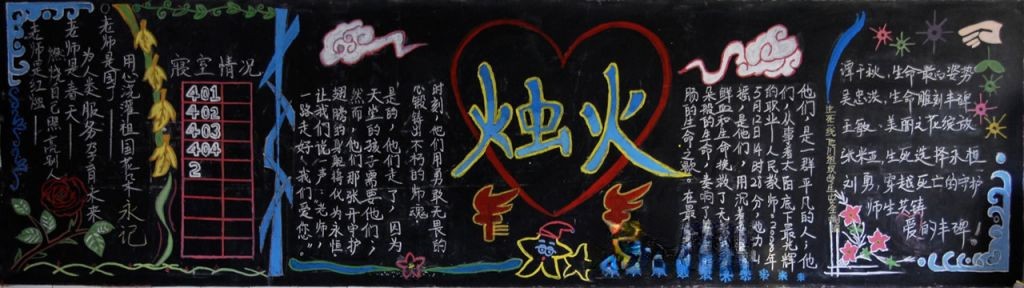 烛火
老师是红烛——
燃烧自己照亮别人
老师是春天——
为人类服务孕育未来
老师是园丁——
用心浇灌祖国花朵
永记
寝室情况
401
402
403
404
2
时刻，他们用勇敢无畏的
心锻铸出不朽的师魂。
是的，他们走了，因为
天堂的孩子需要他们，
然而，他们那张开守护
翅膀的身躯将化为永恒。
让我们说一声"老师，
一路走好，我们爱您。"
他们，是一群平凡的人；他
们，从事着太阳底下最光辉
的职业—人民教师；2008年
5月12日14时28分，他
是他们，用
鲜血和生命挽救了
朵
肠的生命之歌。在最
谭千秋，生命最美的姿势
吴忠洪，生命雕刻丰碑
王敏，美丽之花绽放
张米亚，生死选择永恒
刘勇，穿越死亡的守护
师生共铸
爱的丰碑！